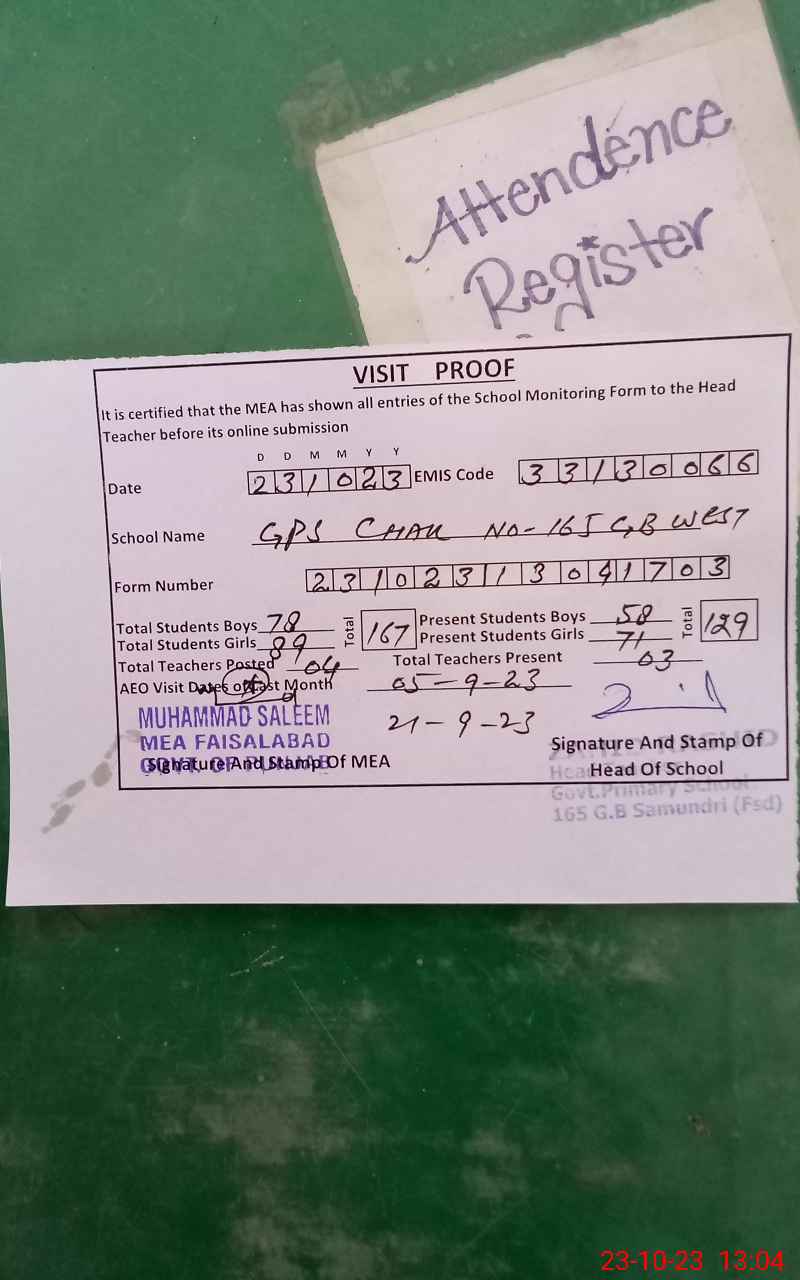 Attendence
Register
VISIT PROOF
It is certified that the MEA has shown all entries of the School Monitoring Form to the Head
Teacher before its online submission
D D M M Y Y
Date 231023 EMIS Code 33130066
School Name GPS CHAK NO-165 GB WEST
Form Number 23102313041703
Total Students Boys 78 Total 167 Present Students Boys 58 Total 129
Total Students Girls 89 Present Students Girls 71
Total Teachers Posted 04 Total Teachers Present 03
AEO Visit Dates of Last Month 05-9-23
21-9-23
MUHAMMAD SALEEM
MEA FAISALABAD
Signature And Stamp Of MEA
Signature And Stamp Of
Head Of School
Govt.Primary School
165 G.B Samundri (Fsd)
23-10-23 13:04